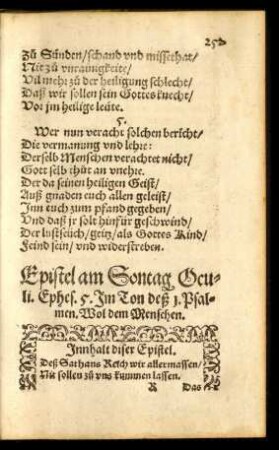 257
Zů Sünden/schand vnd missethat/
Nit zů vnrainigkeite/
Vil mehr zů der heiligung schlecht/
Daß wir sollen sein Gottes knecht/
Vor jm heilige leüte.
5.
Wer nun veracht solchen bericht/
Die vermanung vnd lehre:
Derselb Menschen verachtet nicht/
Gott selb thůt an vnehre.
Der da seinen heiligen Geist/
Auß gnaden euch allen geleist/
Inn euch zum pfand gegeben/
Vnd daß jr solt hinfür geschwind/
Der lustseüch/geitz/als Gottes Kind/
Feind sein/vnd widerstreben.
Epistel am Sontag Ocu-
li. Ephes. 5. Im Ton deß 1. Psal-
men. Wol dem Menschen.
Innhalt diser Epistel.
Deß Sathans Reich wir all ermassen/
Nit sollen zů vns kummen lassen.
R Das